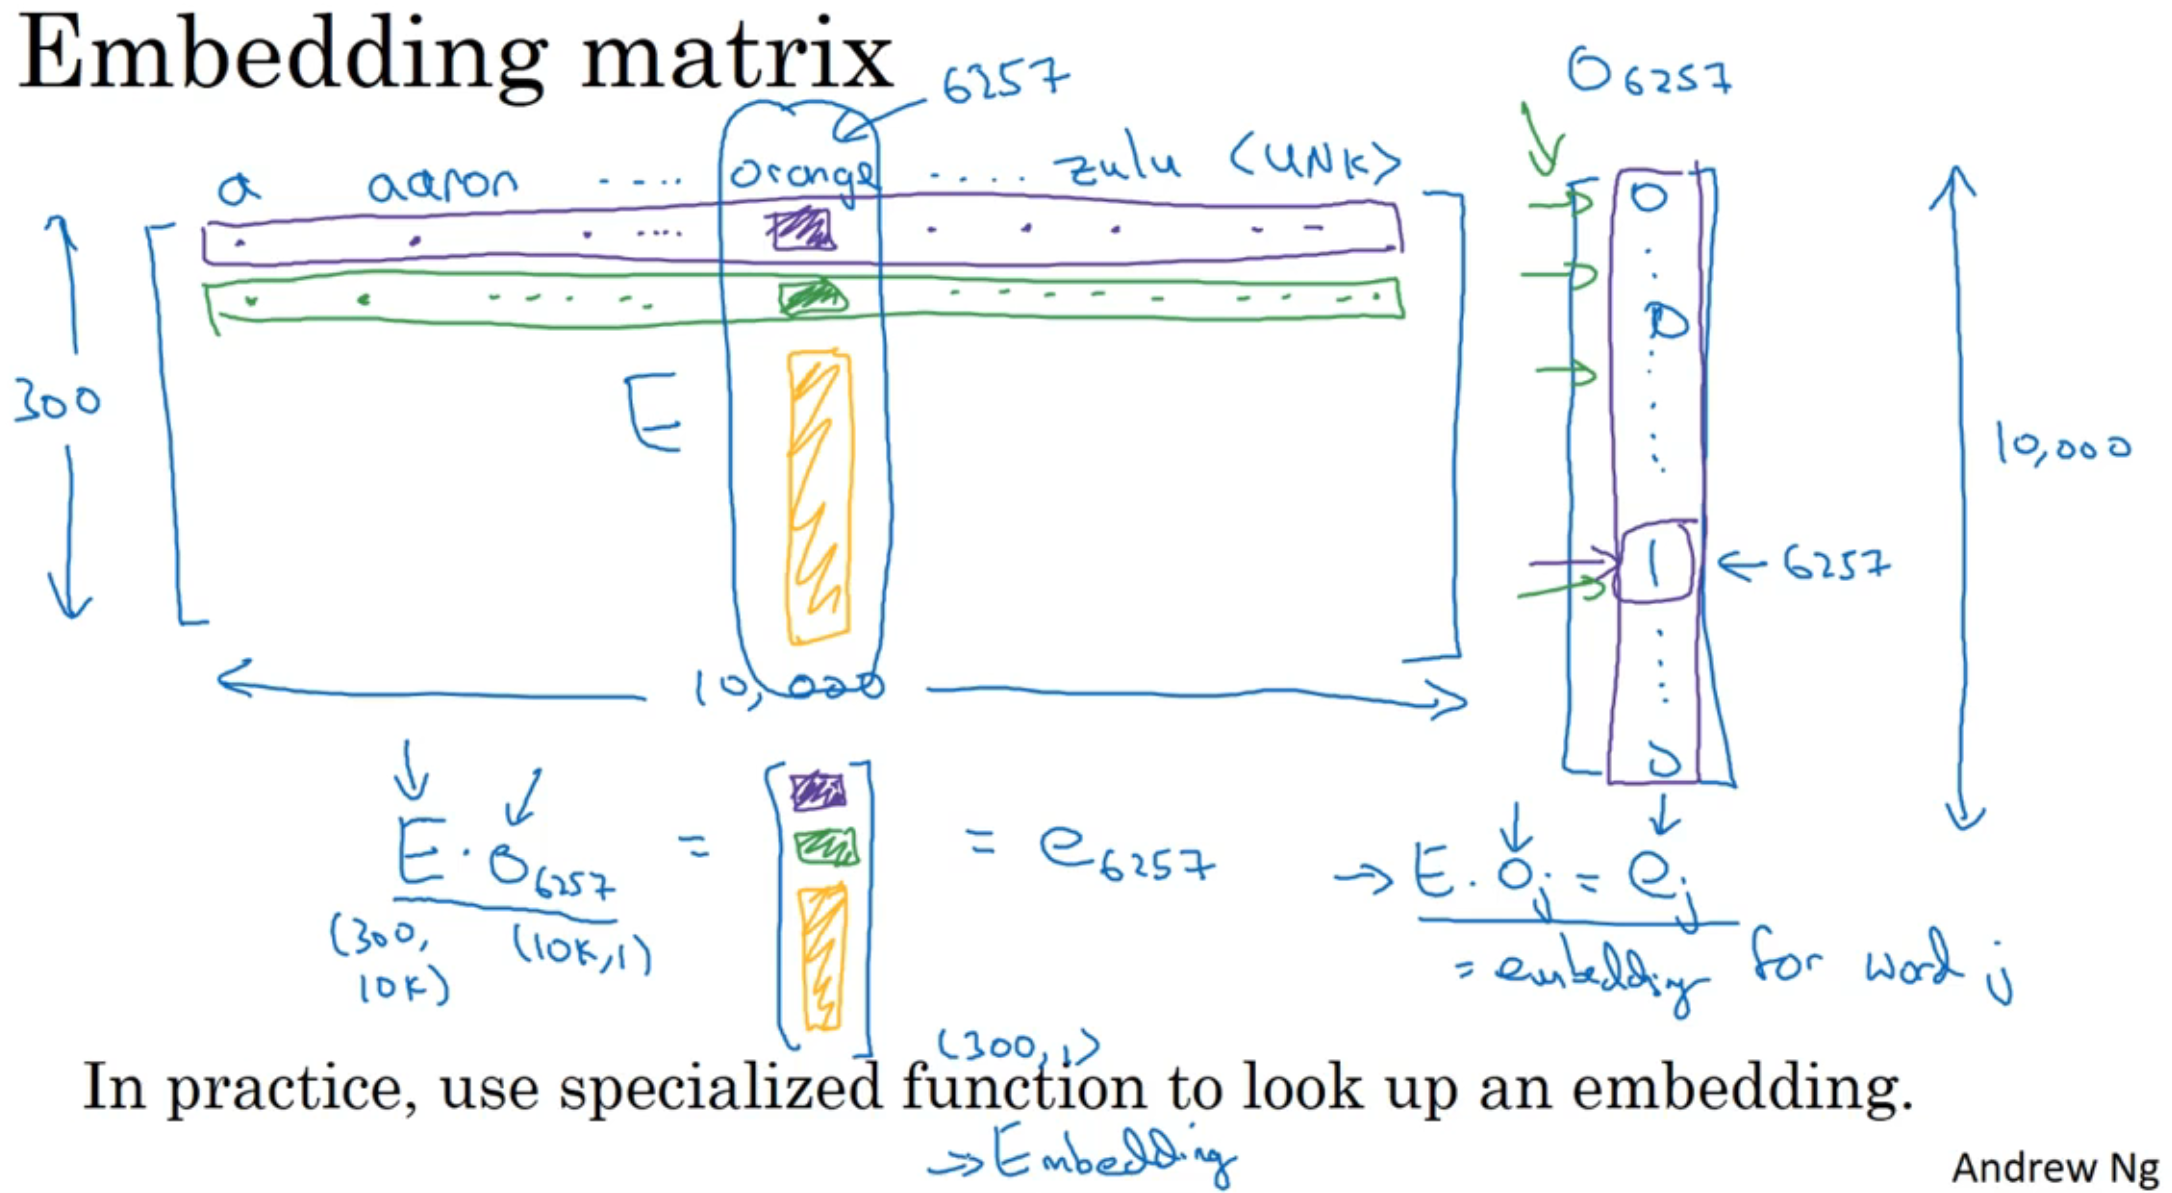 Embedding matrix
6257
O6257
a aaron ---.. orange ..... zulu <UNK>
0
.
.
0
300
E
10,000
1 ← 6257
10,000
0
E · O6257 = [ ] = e6257
(300, 10K) (10K,1)
(300,1)
→ E · Oj = ej
= embedding for word j
In practice, use specialized function to look up an embedding.
→ Embedding
Andrew Ng